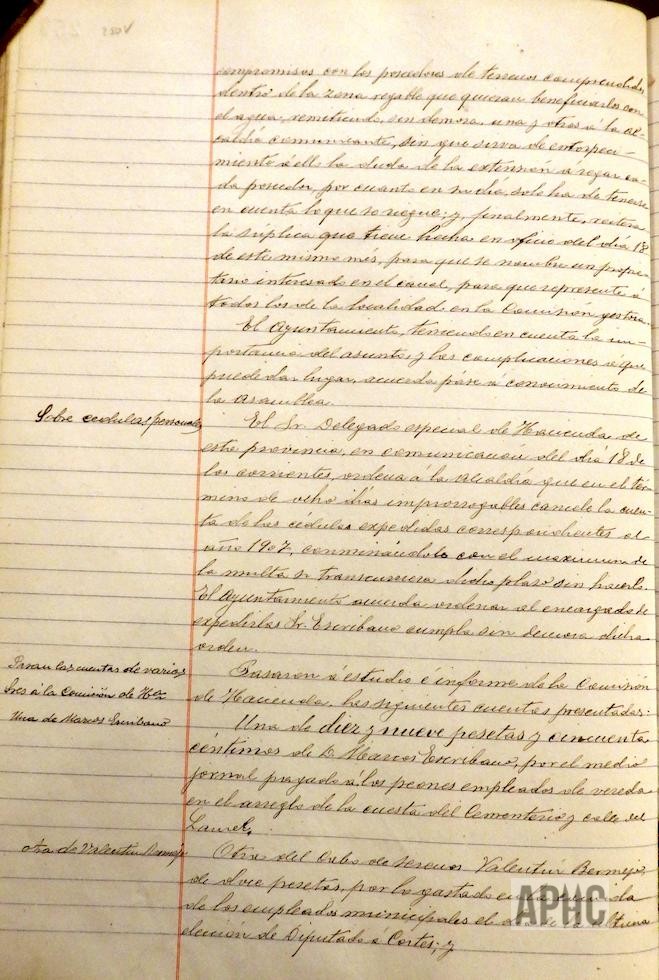 compromisos con los poseedores de terrenos comprendidos
dentro de la zona regable que quieran beneficiarlos con
el agua, remitiendo, sin demora, una y otros á la al-
caldía comunicante, sin que sirva de entorpeci-
miento á ello la duda de la extensión á regar ca-
da poseedor, por cuanto en su día, solo ha de tenerse
en cuenta lo que se riegue; y, finalmente, reitera
la súplica que tiene hecha en oficio del día 18
de este mismo mes, para que se nombre un propie-
tario interesado en el canal, para que represente á
todos los de la localidad en la Comisión gestora.
El Ayuntamiento, teniendo en cuenta la im-
portancia del asunto, y las complicaciones á que
puede dar lugar, acuerda pase á conocimiento de
la Asamblea.
Sobre cédulas personales
El Sr. Delegado especial de Hacienda de
esta provincia, en comunicación del día 18 de
los corrientes, ordena á la Alcaldía que en el tér-
mino de ocho días improrrogables cancele la cuen-
ta de las cédulas expedidas correspondientes al
año 1907, conminándole con el maximum de
la multa si transcurriera dicho plazo sin hacerlo.
El Ayuntamiento acuerda ordenar al encargado de
expedirlas Sr. Escribano cumpla sin demora dicha
orden.
Pasan las cuentas de varios
Sres á la Comisión de Hda
Pasaron á estudio é informe de la Comisión
de Hacienda, las siguientes cuentas presentadas:
Una de Marcos Escribano
Una de diez y nueve pesetas y cincuenta
céntimos de D. Marcos Escribano, por el medio
jornal pagado á los peones empleados de vereda
en el arreglo de la cuesta del Cementerio y calle del
Laurel.
Otra de Valentín Bermejo
Otra del Cabo de serenos Valentín Bermejo,
de doce pesetas, por lo gastado en
de los empleados municipales el día de la última
elección de Diputado á Cortes; y
APHC